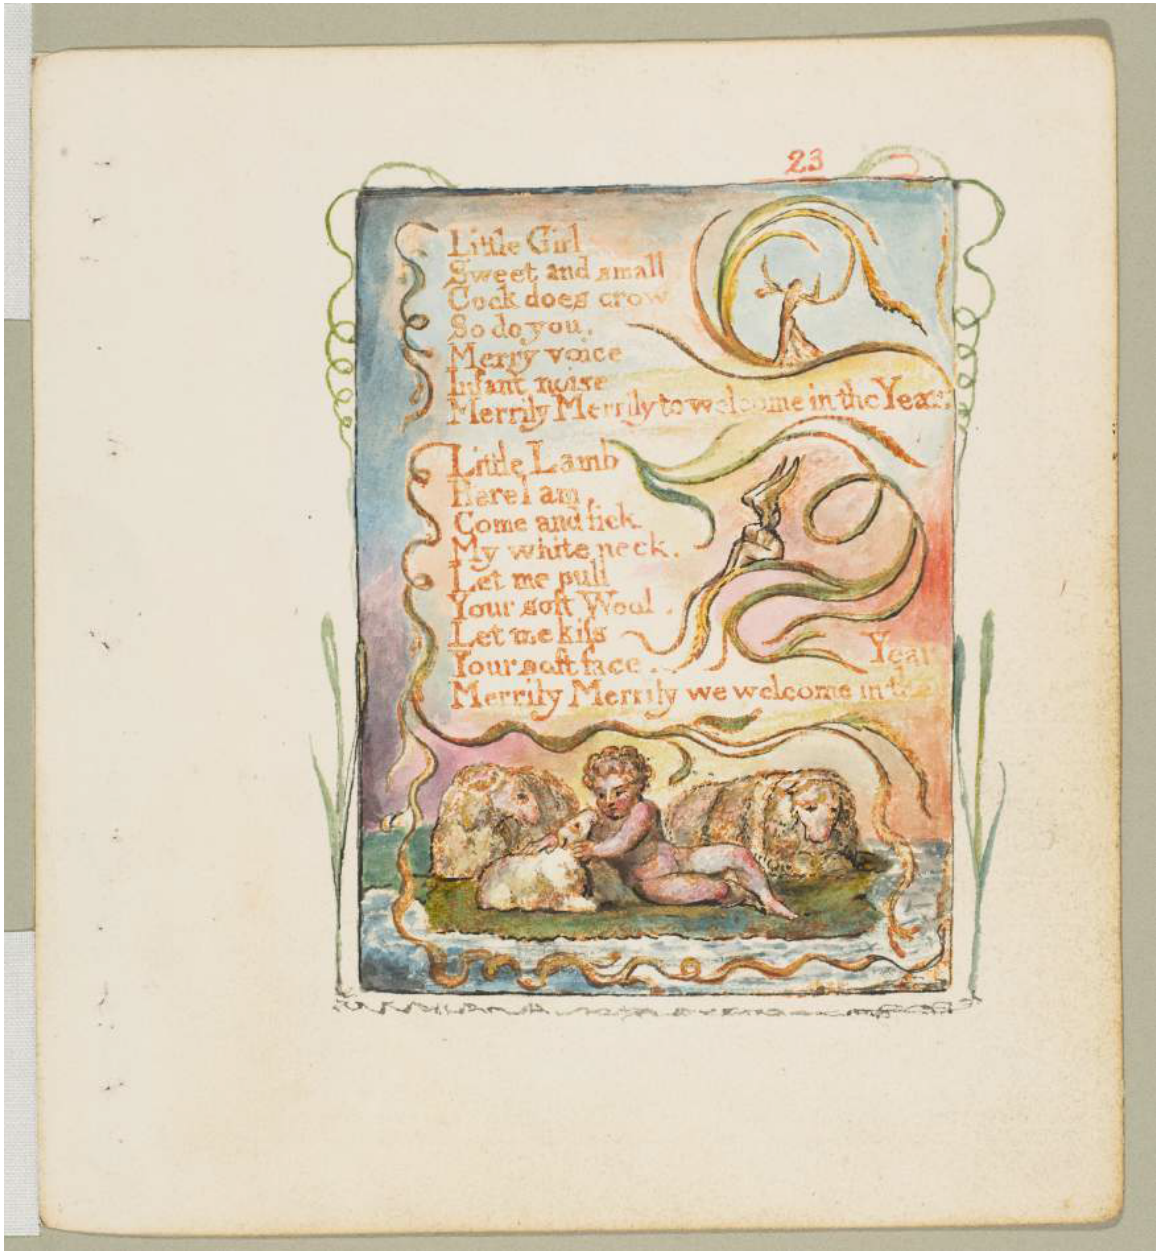 23
Little Girl
Sweet and small
Cock does crow
So do you.
Merry voice
Infant noise
Merrily Merrily to welcome in the Year
Little Lamb
Here I am,
Come and lick
My white neck.
Let me pull
Your soft Wool.
Let me kiſs
Your soft face.
Year
Merrily Merrily we welcome in the